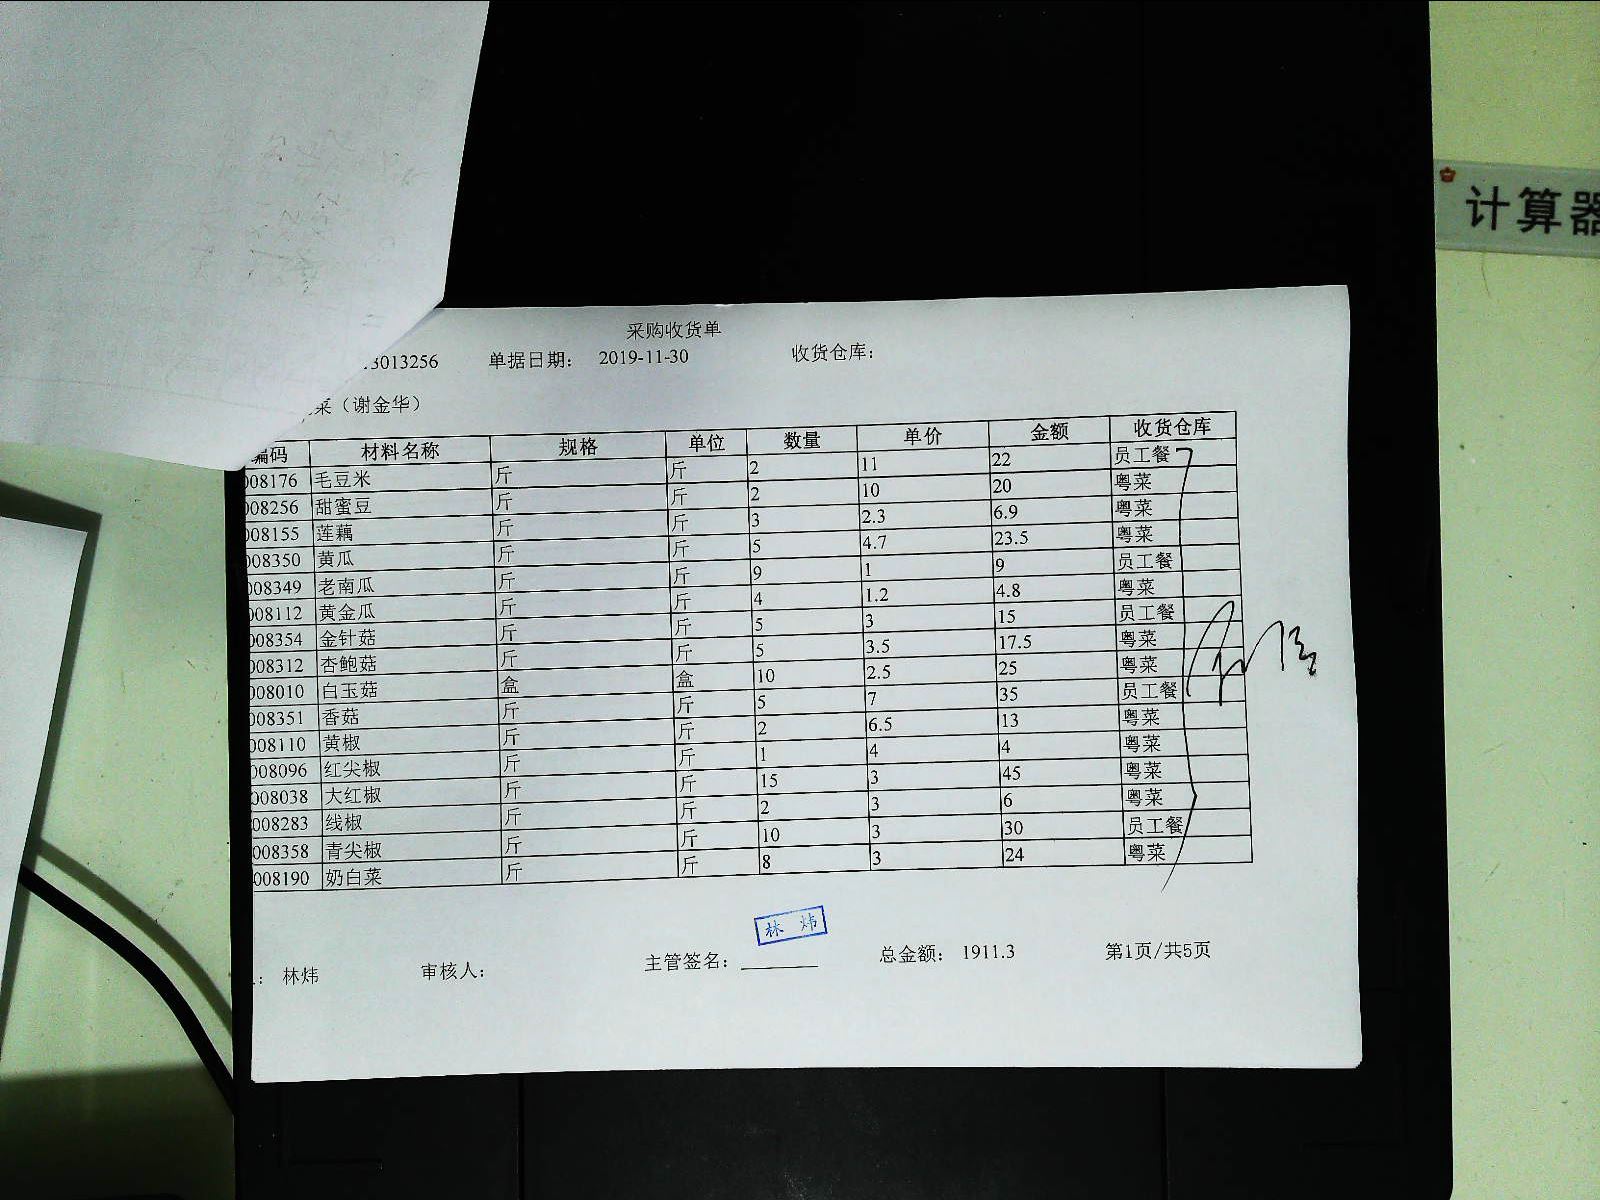 计算器
采购收货单
3013256 单据日期： 2019-11-30 收货仓库：
菜（谢金华）
编码 材料名称 规格 单位 数量 单价 金额 收货仓库
008176 毛豆米 斤 斤 2 11 22 员工餐
008256 甜蜜豆 斤 斤 2 10 20 粤菜
008155 莲藕 斤 斤 3 2.3 6.9 粤菜
008350 黄瓜 斤 斤 5 4.7 23.5 粤菜
008349 老南瓜 斤 斤 9 1 9 员工餐
008112 黄金瓜 斤 斤 4 1.2 4.8 粤菜
008354 金针菇 斤 斤 5 3 15 员工餐
008312 杏鲍菇 斤 斤 5 3.5 17.5 粤菜
008010 白玉菇 盒 盒 10 2.5 25 粤菜
008351 香菇 斤 斤 5 7 35 员工餐
008110 黄椒 斤 斤 2 6.5 13 粤菜
008096 红尖椒 斤 斤 1 4 4 粤菜
008038 大红椒 斤 斤 15 3 45 粤菜
008283 线椒 斤 斤 2 3 6 粤菜
008358 青尖椒 斤 斤 10 3 30 员工餐
008190 奶白菜 斤 斤 8 3 24 粤菜
林炜
： 林炜 审核人： 主管签名： 总金额： 1911.3 第1页/共5页